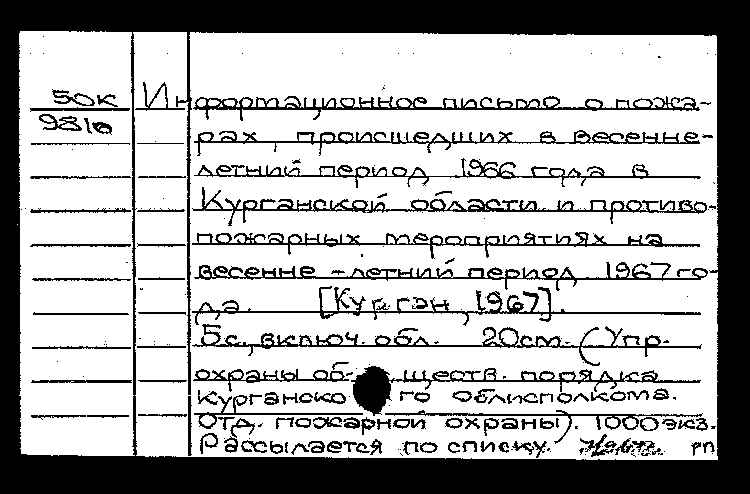 50К Информационное письмо о пожа-
981б рах, происшедших в весенне-
летний период 1966 года в
Курганской области и противо-
пожарных мероприятиях на
весенне-летний период 1967 го-
да. [Курган, 1967].
5с., включ. обл. 20см. (Упр.
охраны об-ществ. порядка
Курганско го облисполкома.
Отд. пожарной охраны). 1000экз.
Рассылается по списку. рп